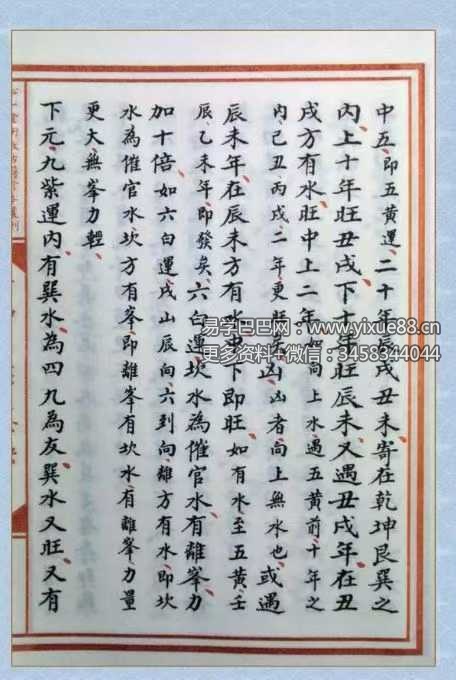 中五即五黃運二十年辰戌丑未寄在乾坤艮巽之
內上十年旺丑戌下十年旺辰未又遇丑戌年在丑
戌方有水旺中上二年如向上水遇五黃前十年之
內己丑丙戌二年更旺矣凶凶者向上無水也或遇
辰未年在辰未方有水中下即旺如有水至五黃壬
辰乙未年即發矣六白運坎水為催官水有離峯力
加十倍如六白運戌山辰向六到向離方有水即坎
水為催官水坎方有峯即離峯有坎水有離峯力量
更大無峯力輕
下元九紫運內有巽水為四九為友巽水又旺又有
易学巴巴网：www.yixue88.cn
更多资料+微信：3458344044